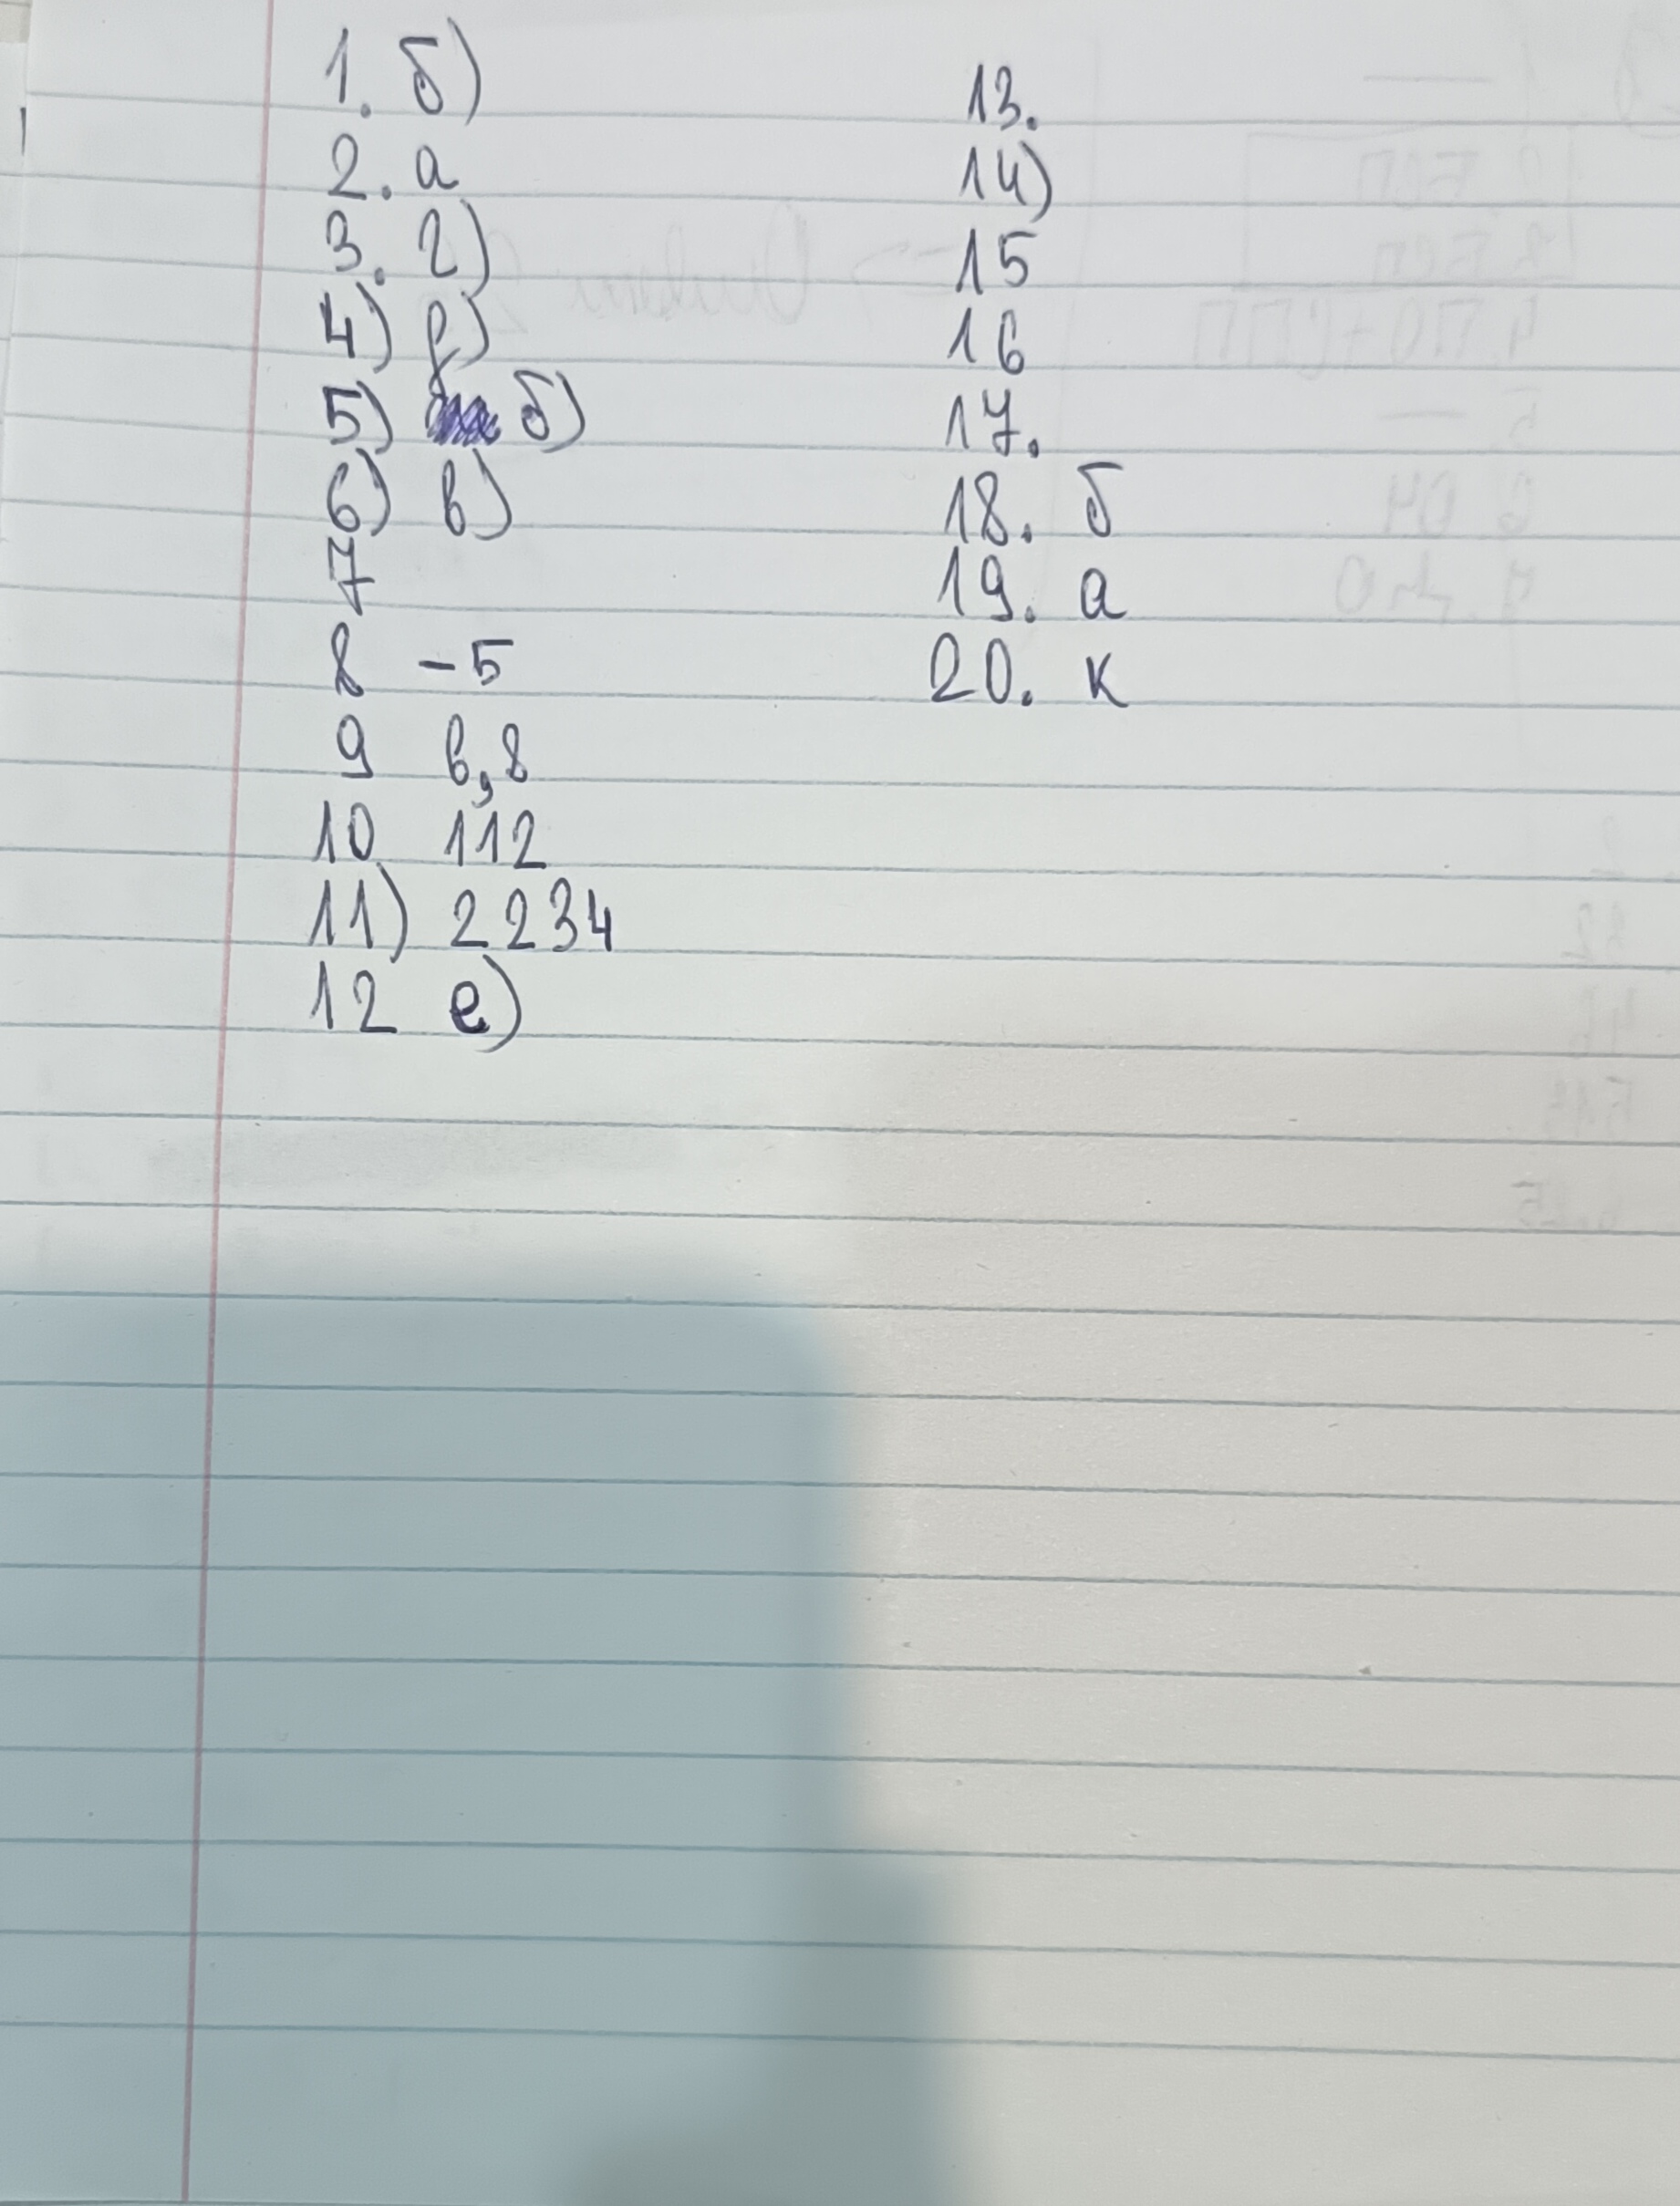 1. б)
2. а
3. г)
4) д)
5) б)
6) в)
7
8 -5
9 в,8
10 112
11) 2234
12 е)
13.
14)
15
16
17.
18. б
19. а
20. к